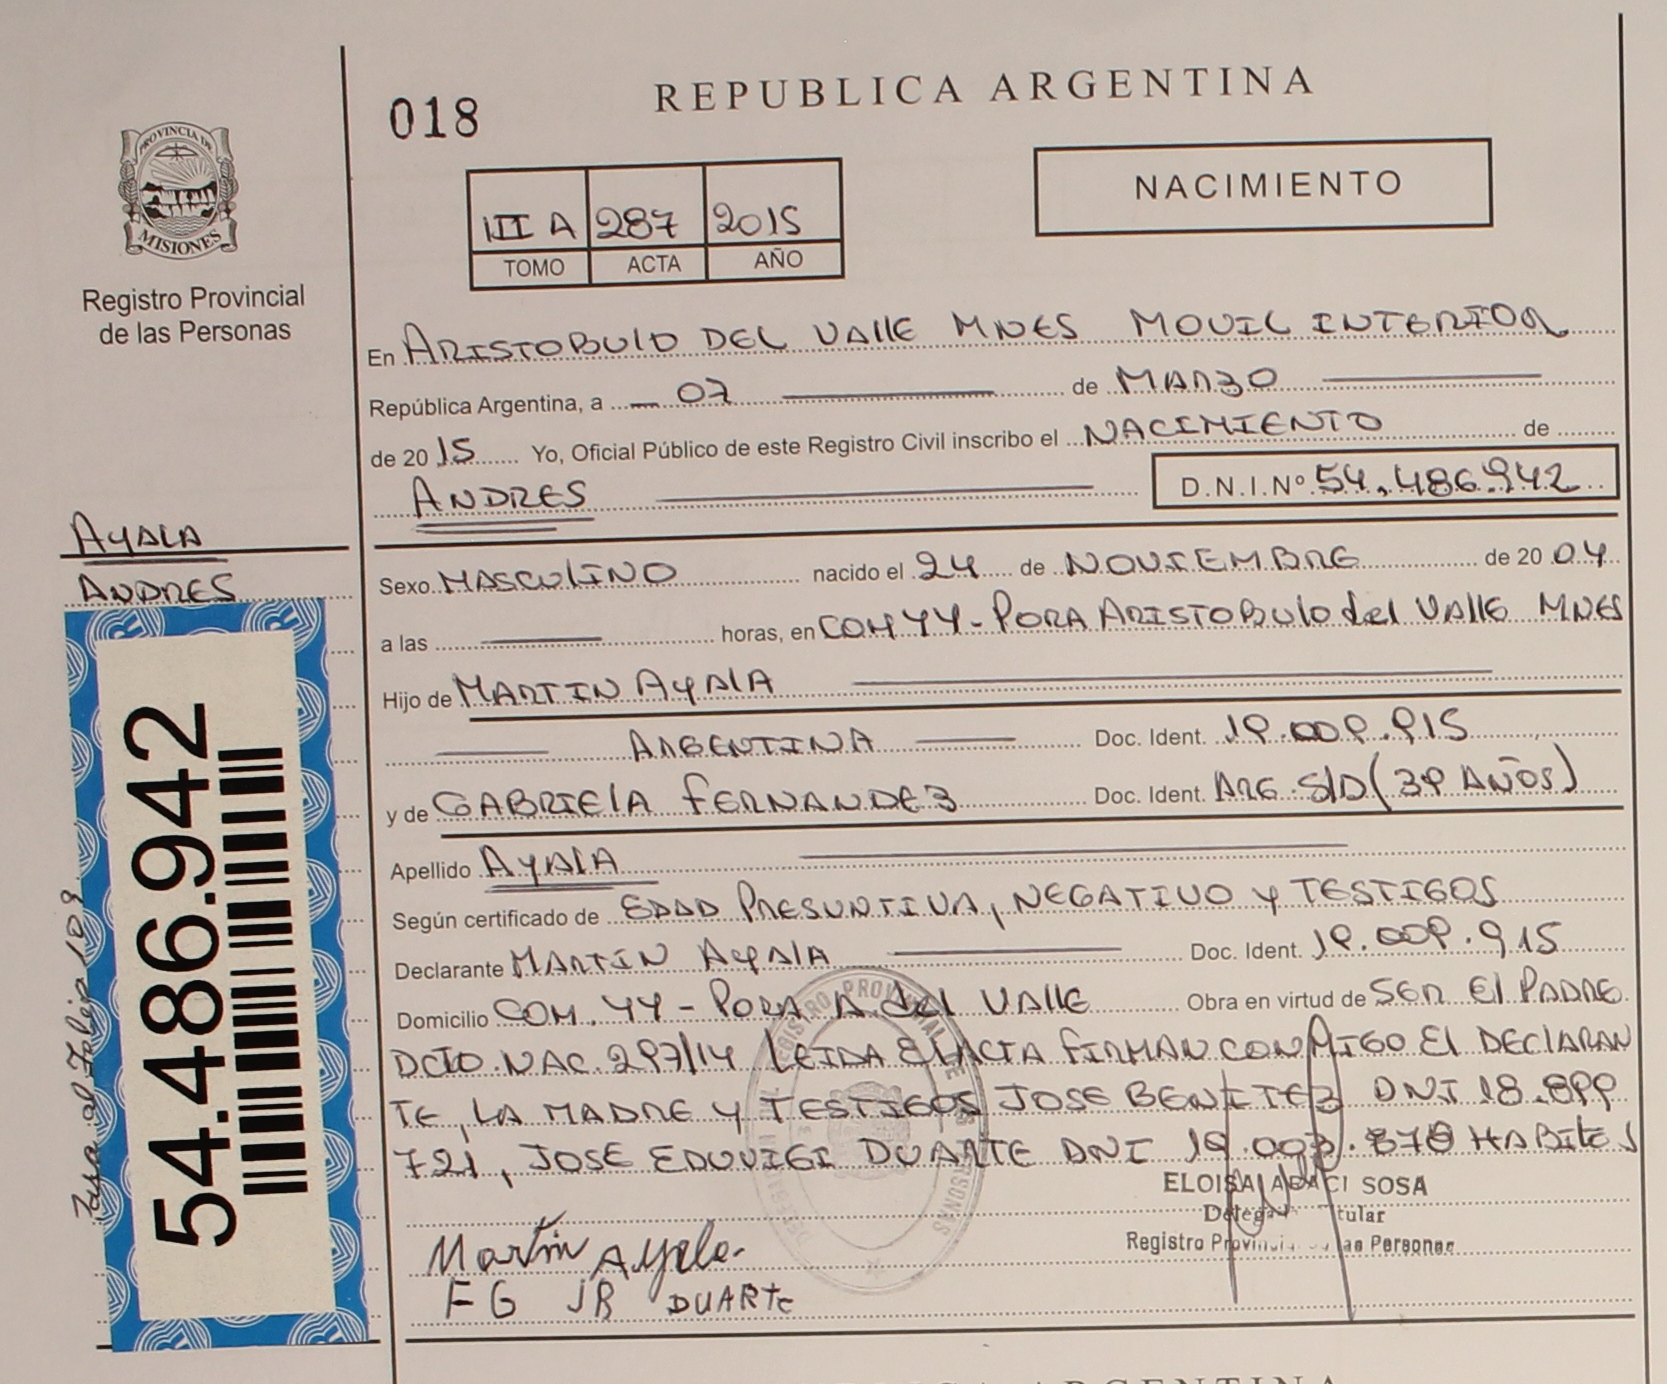 018
REPUBLICA ARGENTINA
PROVINCIA DE
MISIONES
Registro Provincial
de las Personas
III A 287 2015
TOMO ACTA AÑO
NACIMIENTO
En ARISTOBULO DEL VALLE MNES MOVIL INTERIOR
República Argentina, a 07 de MARZO
de 2015 Yo, Oficial Público de este Registro Civil inscribo el NACIMIENTO de
ANDRES D.N.I.Nº 54.486.942
AYALA
ANDRES
Sexo MASCULINO nacido el 24 de NOVIEMBRE de 2004
a las horas, en COM YY-PORA ARISTOBULO del VALLE MNES
Hijo de MARTIN AYALA
ARGENTINA Doc. Ident. 19.009.915
y de GABRIELA FERNANDEZ Doc. Ident. ARG. S/D (39 AÑOS)
Apellido AYALA
Según certificado de EDAD PRESUNTIVA, NEGATIVO Y TESTIGOS
Declarante MARTIN AYALA Doc. Ident. 19.009.915
Domicilio COM. YY-PORA A. del VALLE Obra en virtud de SER El PADRE
DCTO. NAC. 297/14 LEIDA El ACTA FIRMAN CONMIGO El DECLARAN
TE, LA MADRE Y TESTIGOS JOSE BENITEZ DNI 18.899
721, JOSE EDUVIGI DUARTE DNI 19.003.878 HABILES
ELOISA SOSA
Titular
Registro Provincial de las Personas
Martin Ayala
FG JB DUARTE
54.486.942
Pasa al Folio 109
REGISTRO PROVINCIAL DE LAS PERSONAS
REPUBLICA ARGENTINA